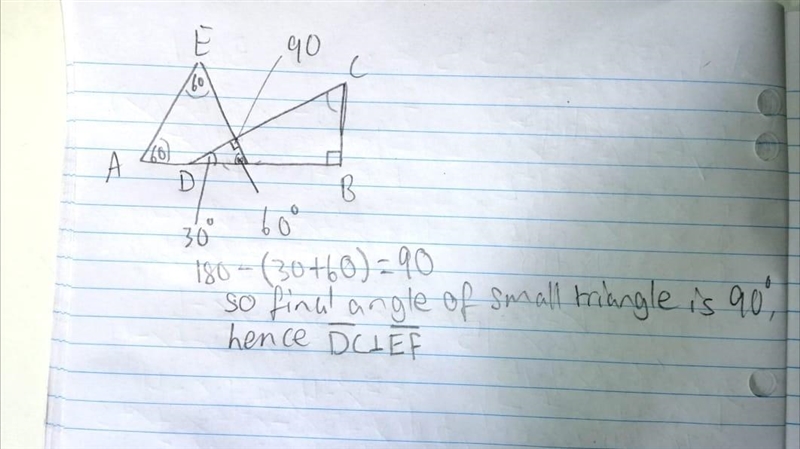 E
90
C
60
60
A
D
B
30°
60°
180-(30+60)=90
so final angle of small triangle is 90°,
hence DC⊥EF